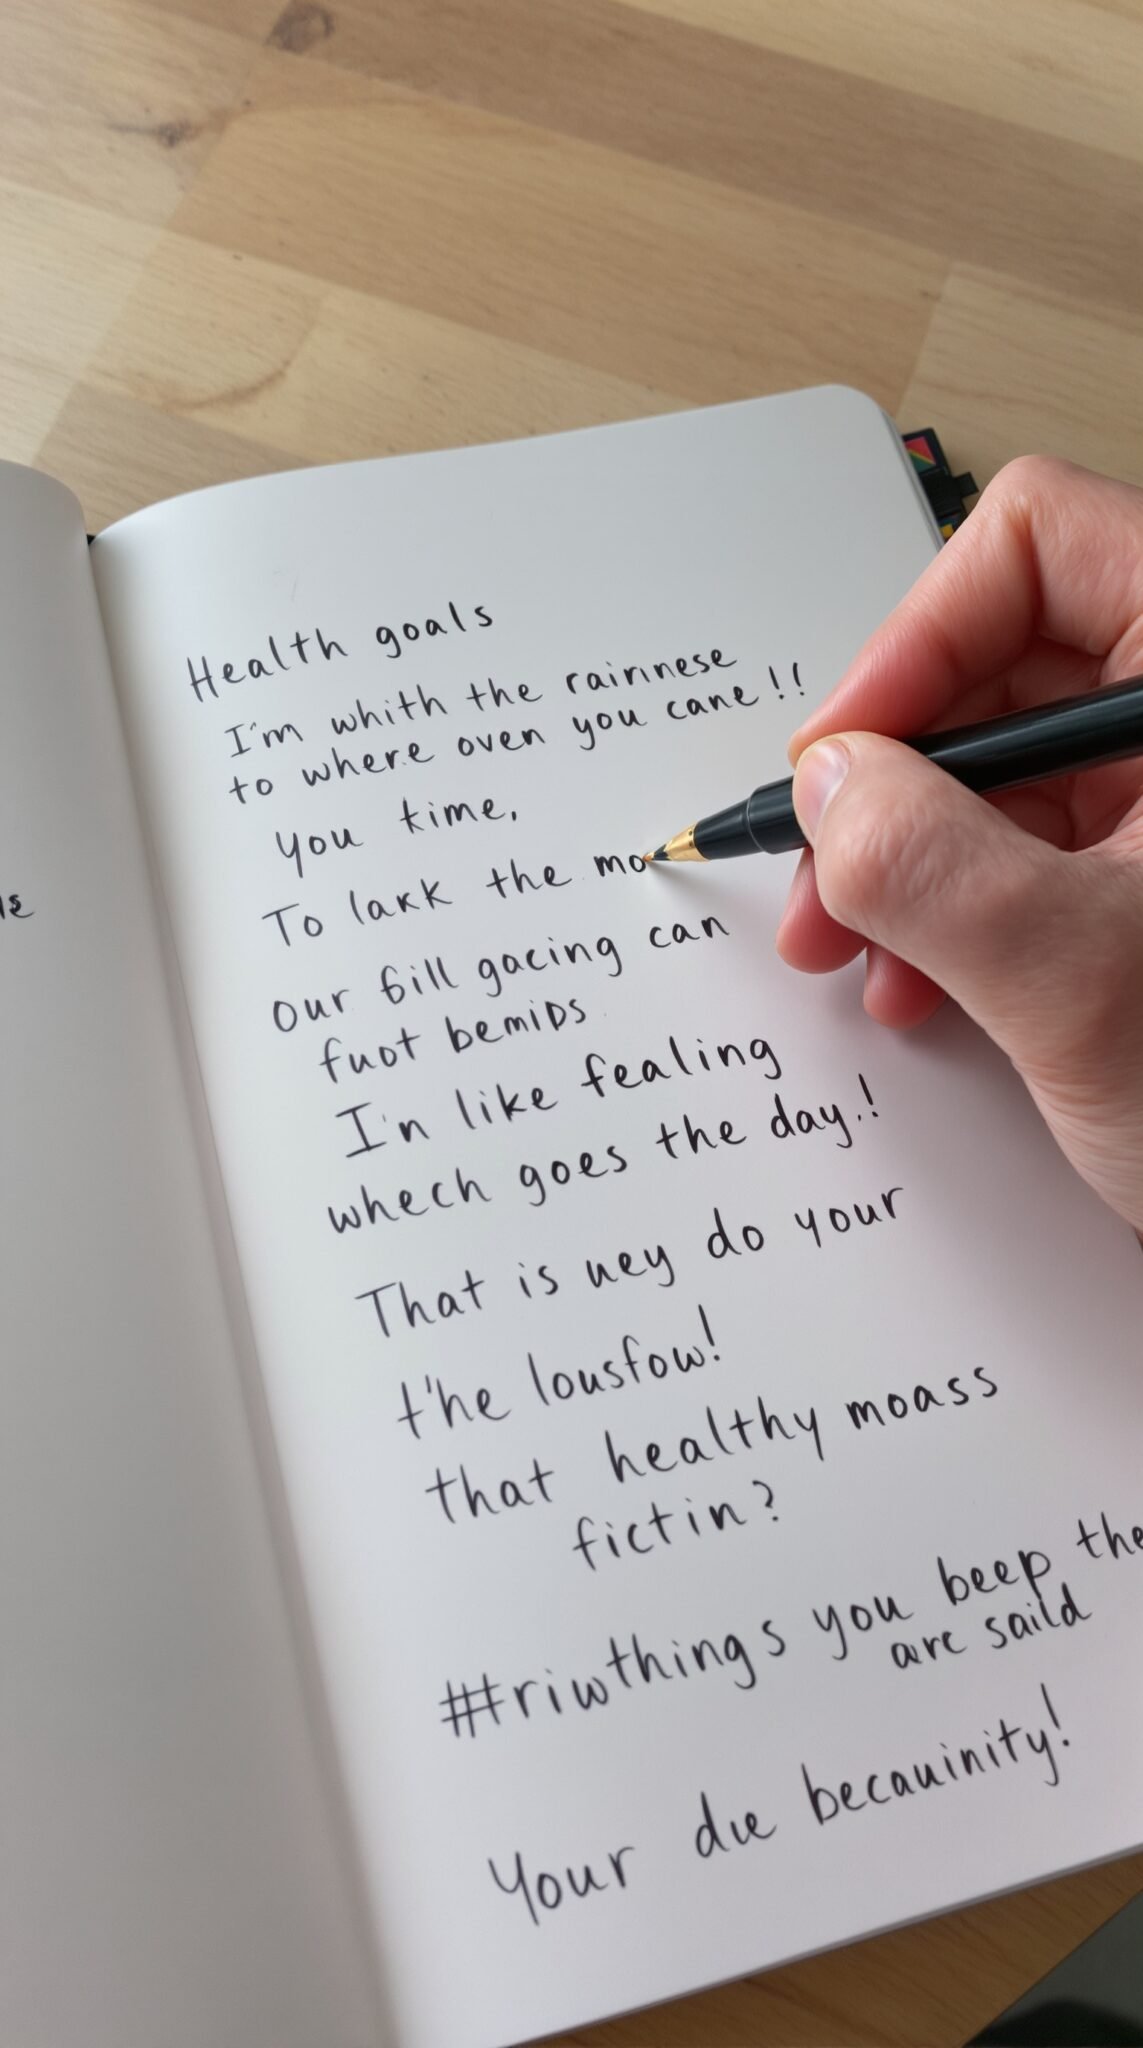 Health goals
I'm whith the rairinese
to where oven you cane!!
you kime,
To lakk the mo
our bill gacing can
fuot bemips
I'n like fealing
whech goes the day.!
That is uey do your
t'he lousfow!
that healthy moass
fictin?
#triwthings you beep the
are saild
Your due becauinity!